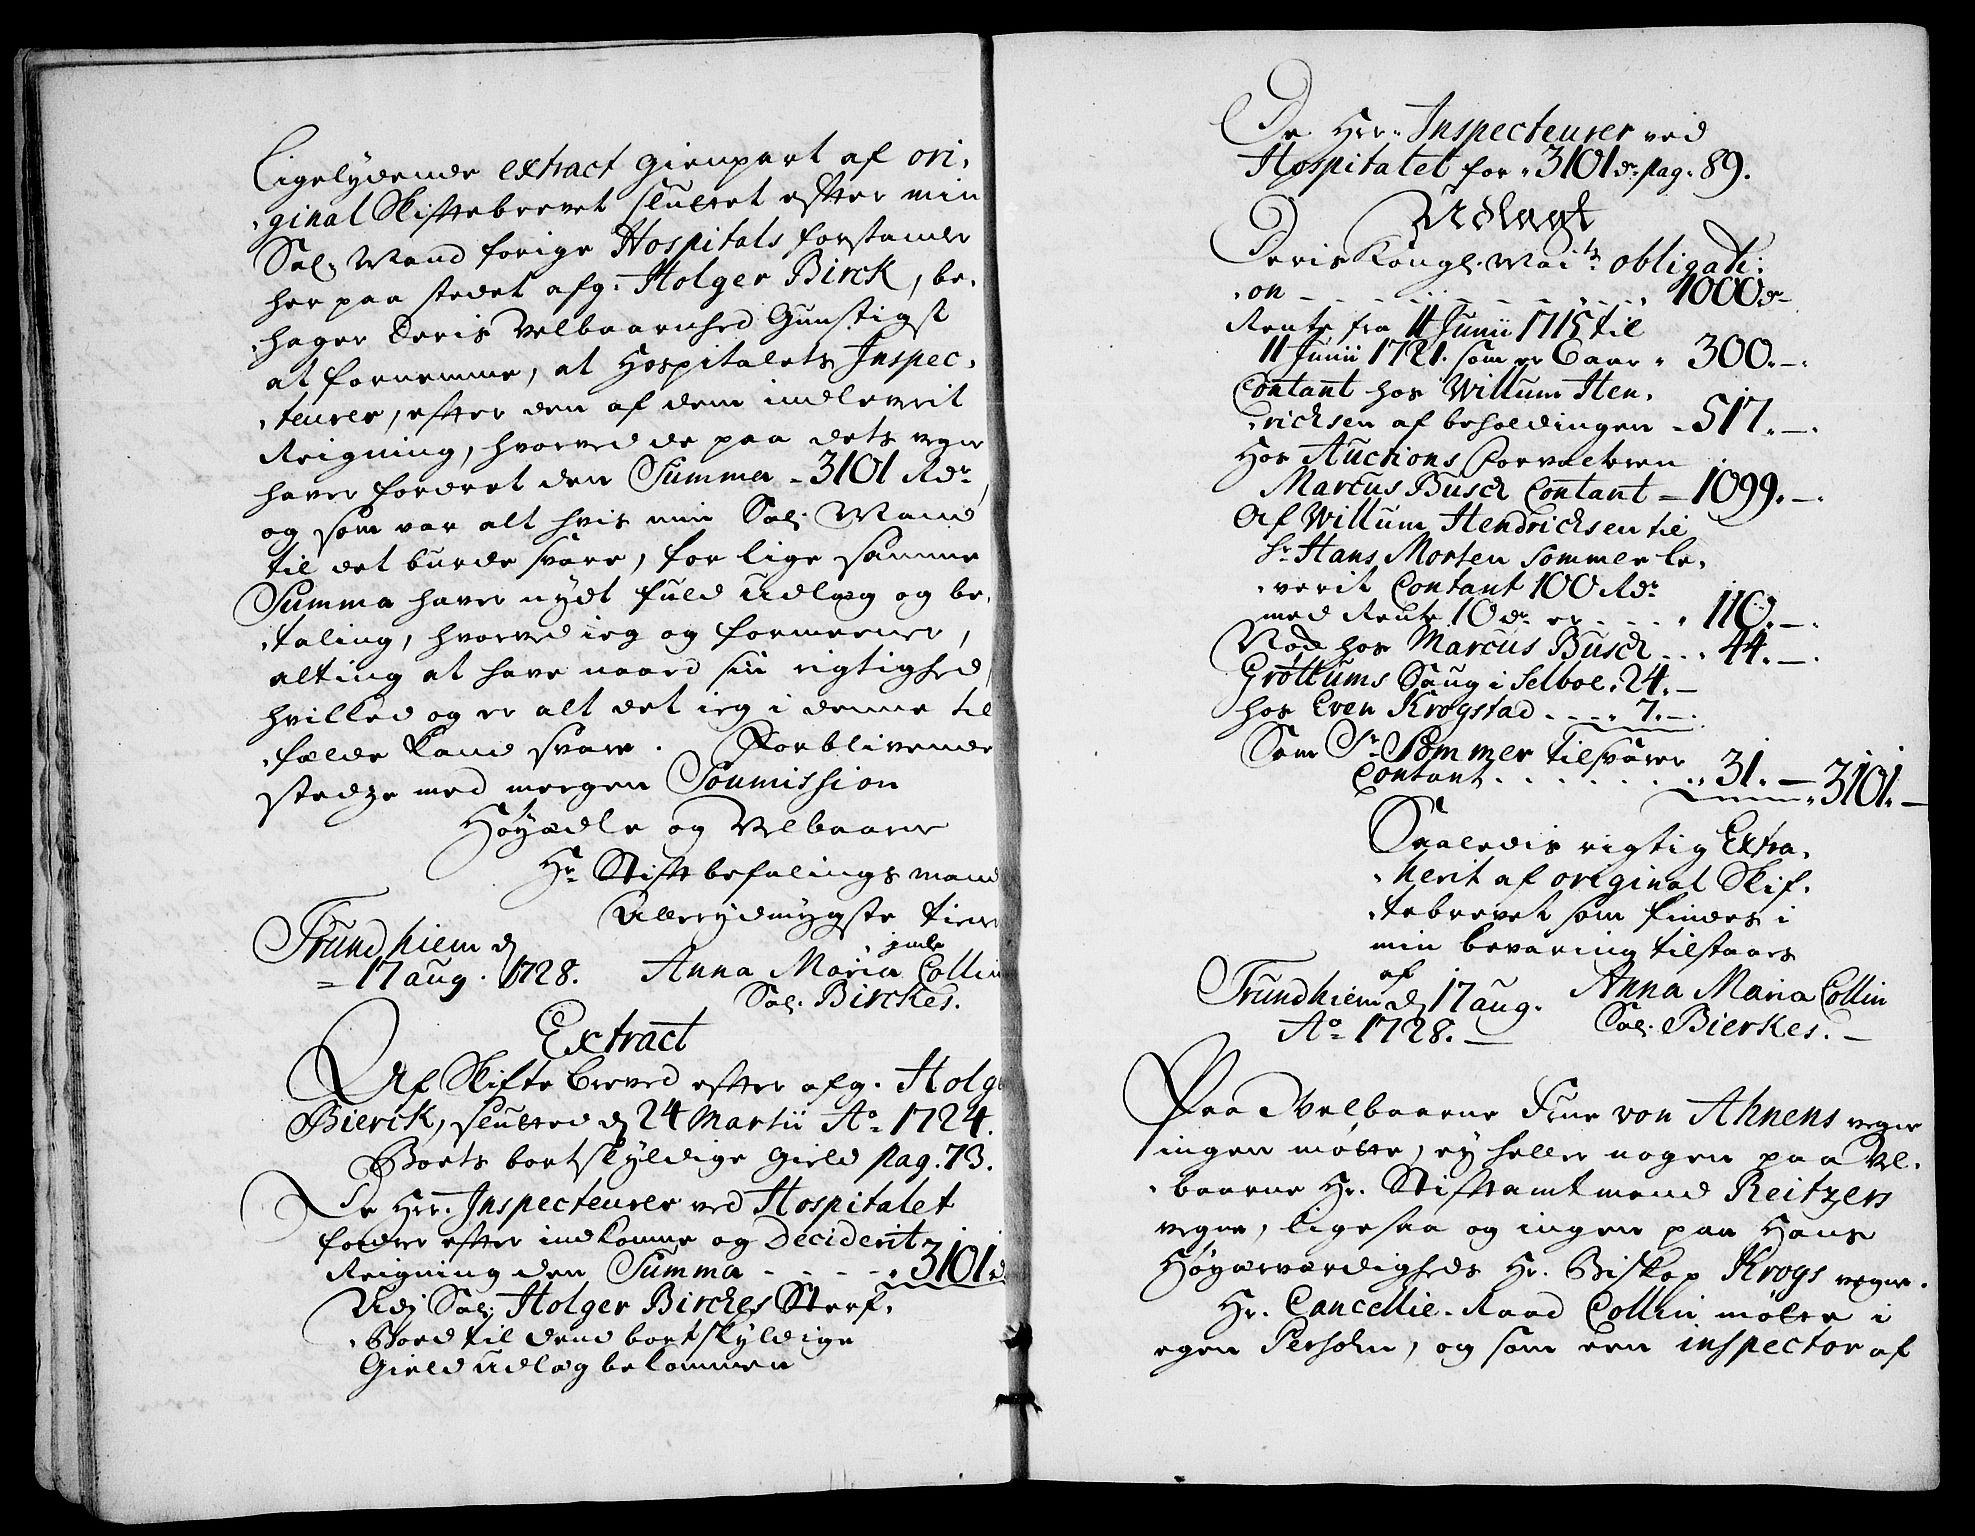 Ligelydende extract gienpart af ori,
,ginal Skiftebrevet sluttet effter min
Sal: Mand forige Hospitals forstander
her paa stedet afg: Holger Birck, be,
,hager Deris Velbaarnhed Gunstigst
at fornemme, at Hospitalets Inspec,
,teurer, effter den af dem indleverit
Reigning, hvorved de paa dets vegne
haver fordret den Summa - 3101 Rdr
og som var alt hvis min Sal: Mand
til det burde svare, for lige samme
Summa haver nydt fuld udlæg og be,
,taling, hvorved ieg og formeener,
alting at have naaed sin rigtighed,
hvilked og er alt det ieg i denne til
,fælde kand svare. Forblivende
stedze med megen Soumission
Høyædle og Velbaarne
Hr Stiftbefalings mand
Allerydmygste tien
Trundhiem d
17 aug. 1728. Anna Maria Collin
Sal. Birckes.
Extract
Af Skifte brevet effter afg. Holg
Bierck, slutted d 24 Martii Ao 1724.
Boets bortskyldige Gield pag. 73.
De Hrr. Inspecteurer ved Hospitalet
fordrer effter indkomne og Deciderit
Reigning den Summa - - - - 3101 d
Udj Sal: Holger Birches Sterf,
,Boed til dend bortskyldige
Gield udlæg bekommen
De Hrr. Inspecteurer ved
Hospitalet for 3101 dr pag. 89.
Udlagt
Deris Kongl. Maits obligati,
,on - - - - - - - - 1000 dr
Rente fra 11 Junii 1715 til
11 Junii 1721. som er 6 aar 300. -
Contant hos Willum Hen,
,richsen af beholdingen - 517. -
Hos Auctions Forvalteren
Marcus Busch Contant - 1099. -
Af Willum Hendrichsen til
Sr Hans Morten Sommer le,
,verit Contant 100 Rdr
med Rente 10 dr er . . . . 110. -
Nød hos Marcus Busch . . . 44. -
Grøttums Saug i Selboe . 24. -
hos Even Krogstad . . . . 7. -
Som Sr Sommer tilsvarer
Contant . . . . . . . 31. - 3101. -
Saaledis rigtig Extra,
,herit af original Skif,
,tebrevet som findes i
min bevaring tilstaaes
af
Trundhiem d 17 aug. Anna Maria Collin
Ao 1728. Sal. Bierkes.
Paa Velbaarne Frue von Ahnens vegne
ingen møtte, ey heller nogen paa Vel,
,baarne Hr. Stiftamtmand Reitzers
vegne, ligesaa og ingen paa Hans
Høyærværdigheds Hr. Biskop Krogs vegne.
Hr. Cancellie-Raad Collin møtte i
egen Persohn, og som een inspector af